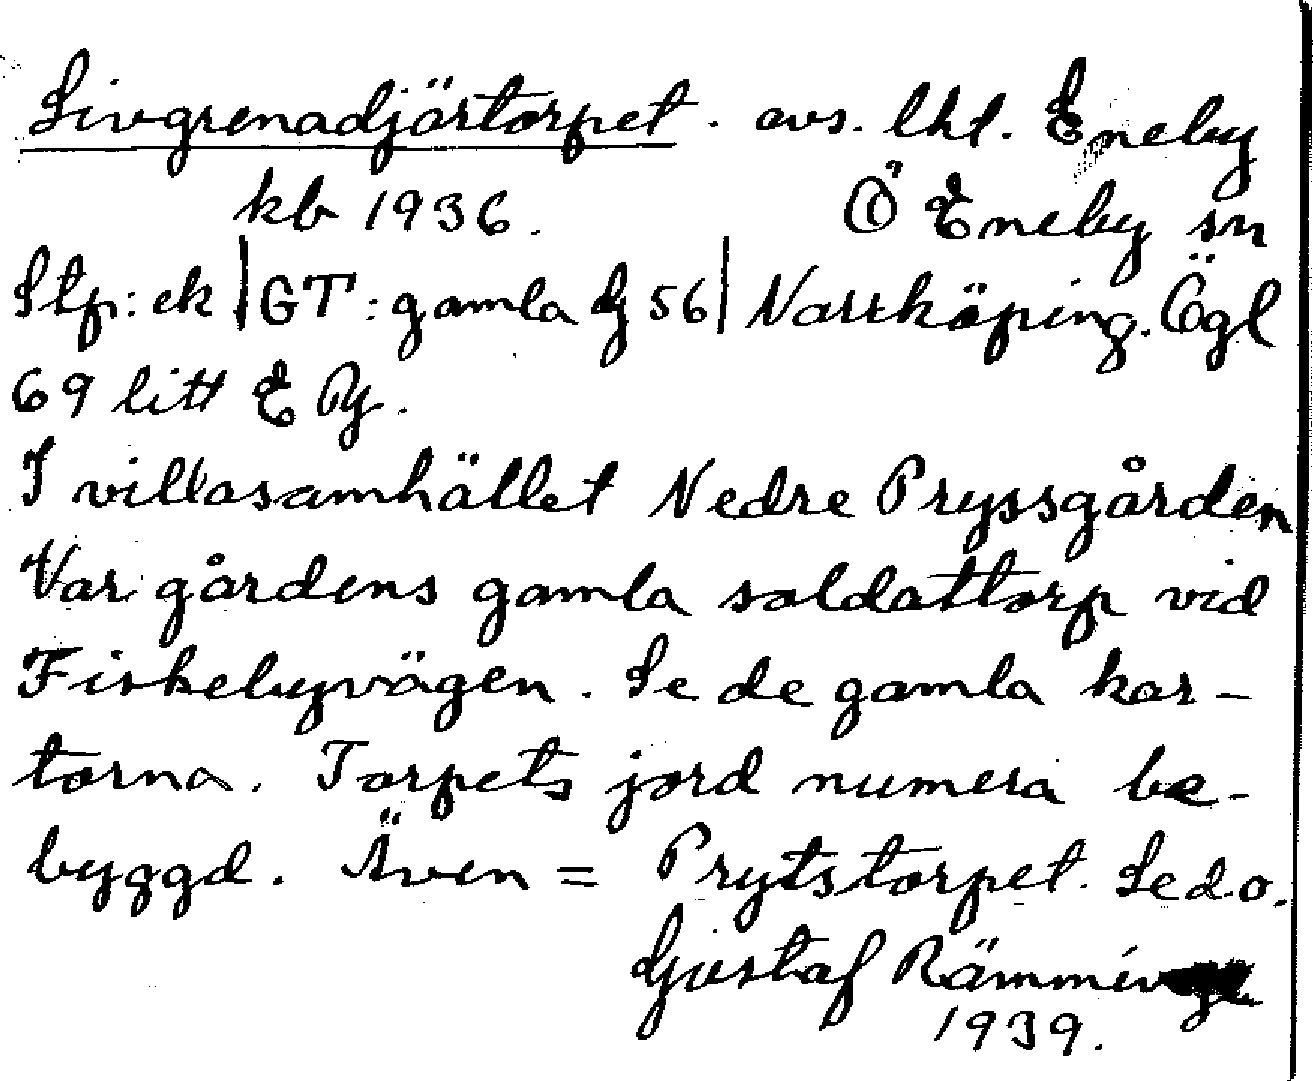 Livgrenadjärtorpet. avs. lht. Eneby
kb 1936. Ö Eneby sn
Stp: ek | GT: gamla Dj 56 | Norrköping. Ögl
69 litt E Py.
I villasamhället Nedre Pryssgården
Var gårdens gamla soldattorp vid
Fiskebyvägen. Se de gamla kar-
torna. Torpets jord numera be-
byggd. Även = Prytstorpet. Se d.o.
Gustaf Rämming
1939.